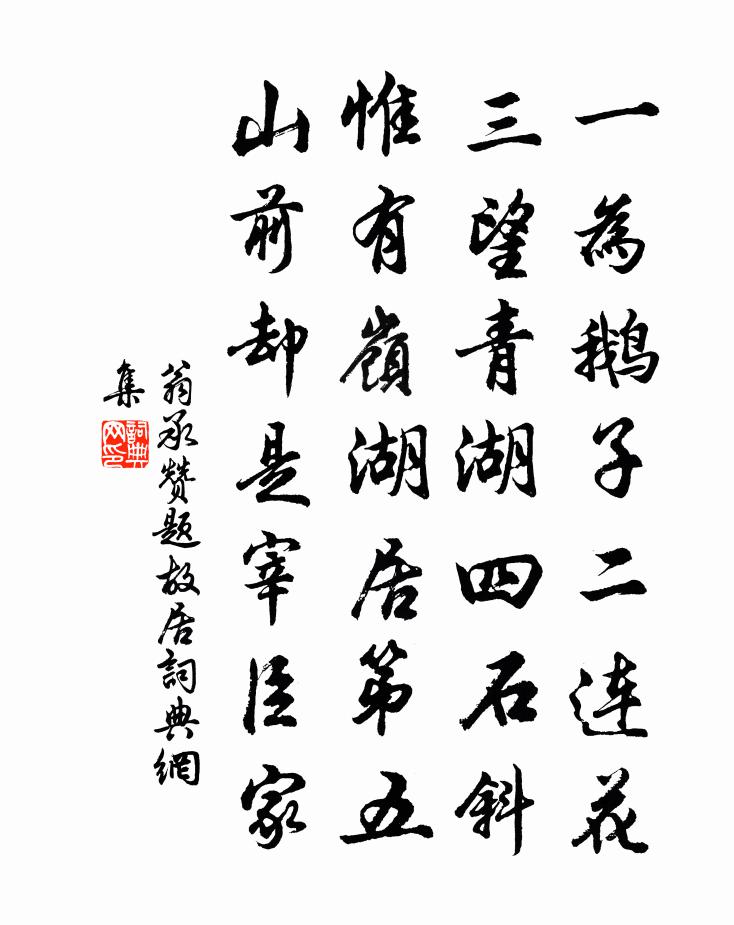 一為鵝子二連花
三望青湖四石斜
惟有嶺湖居第五
山前却是宰臣家
翁承贊題故居詞典網
集
詞典
网印